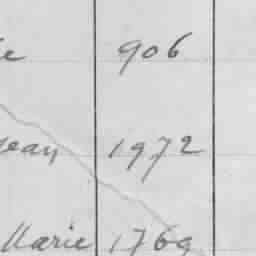 906
Jean 1972
Marie 1769